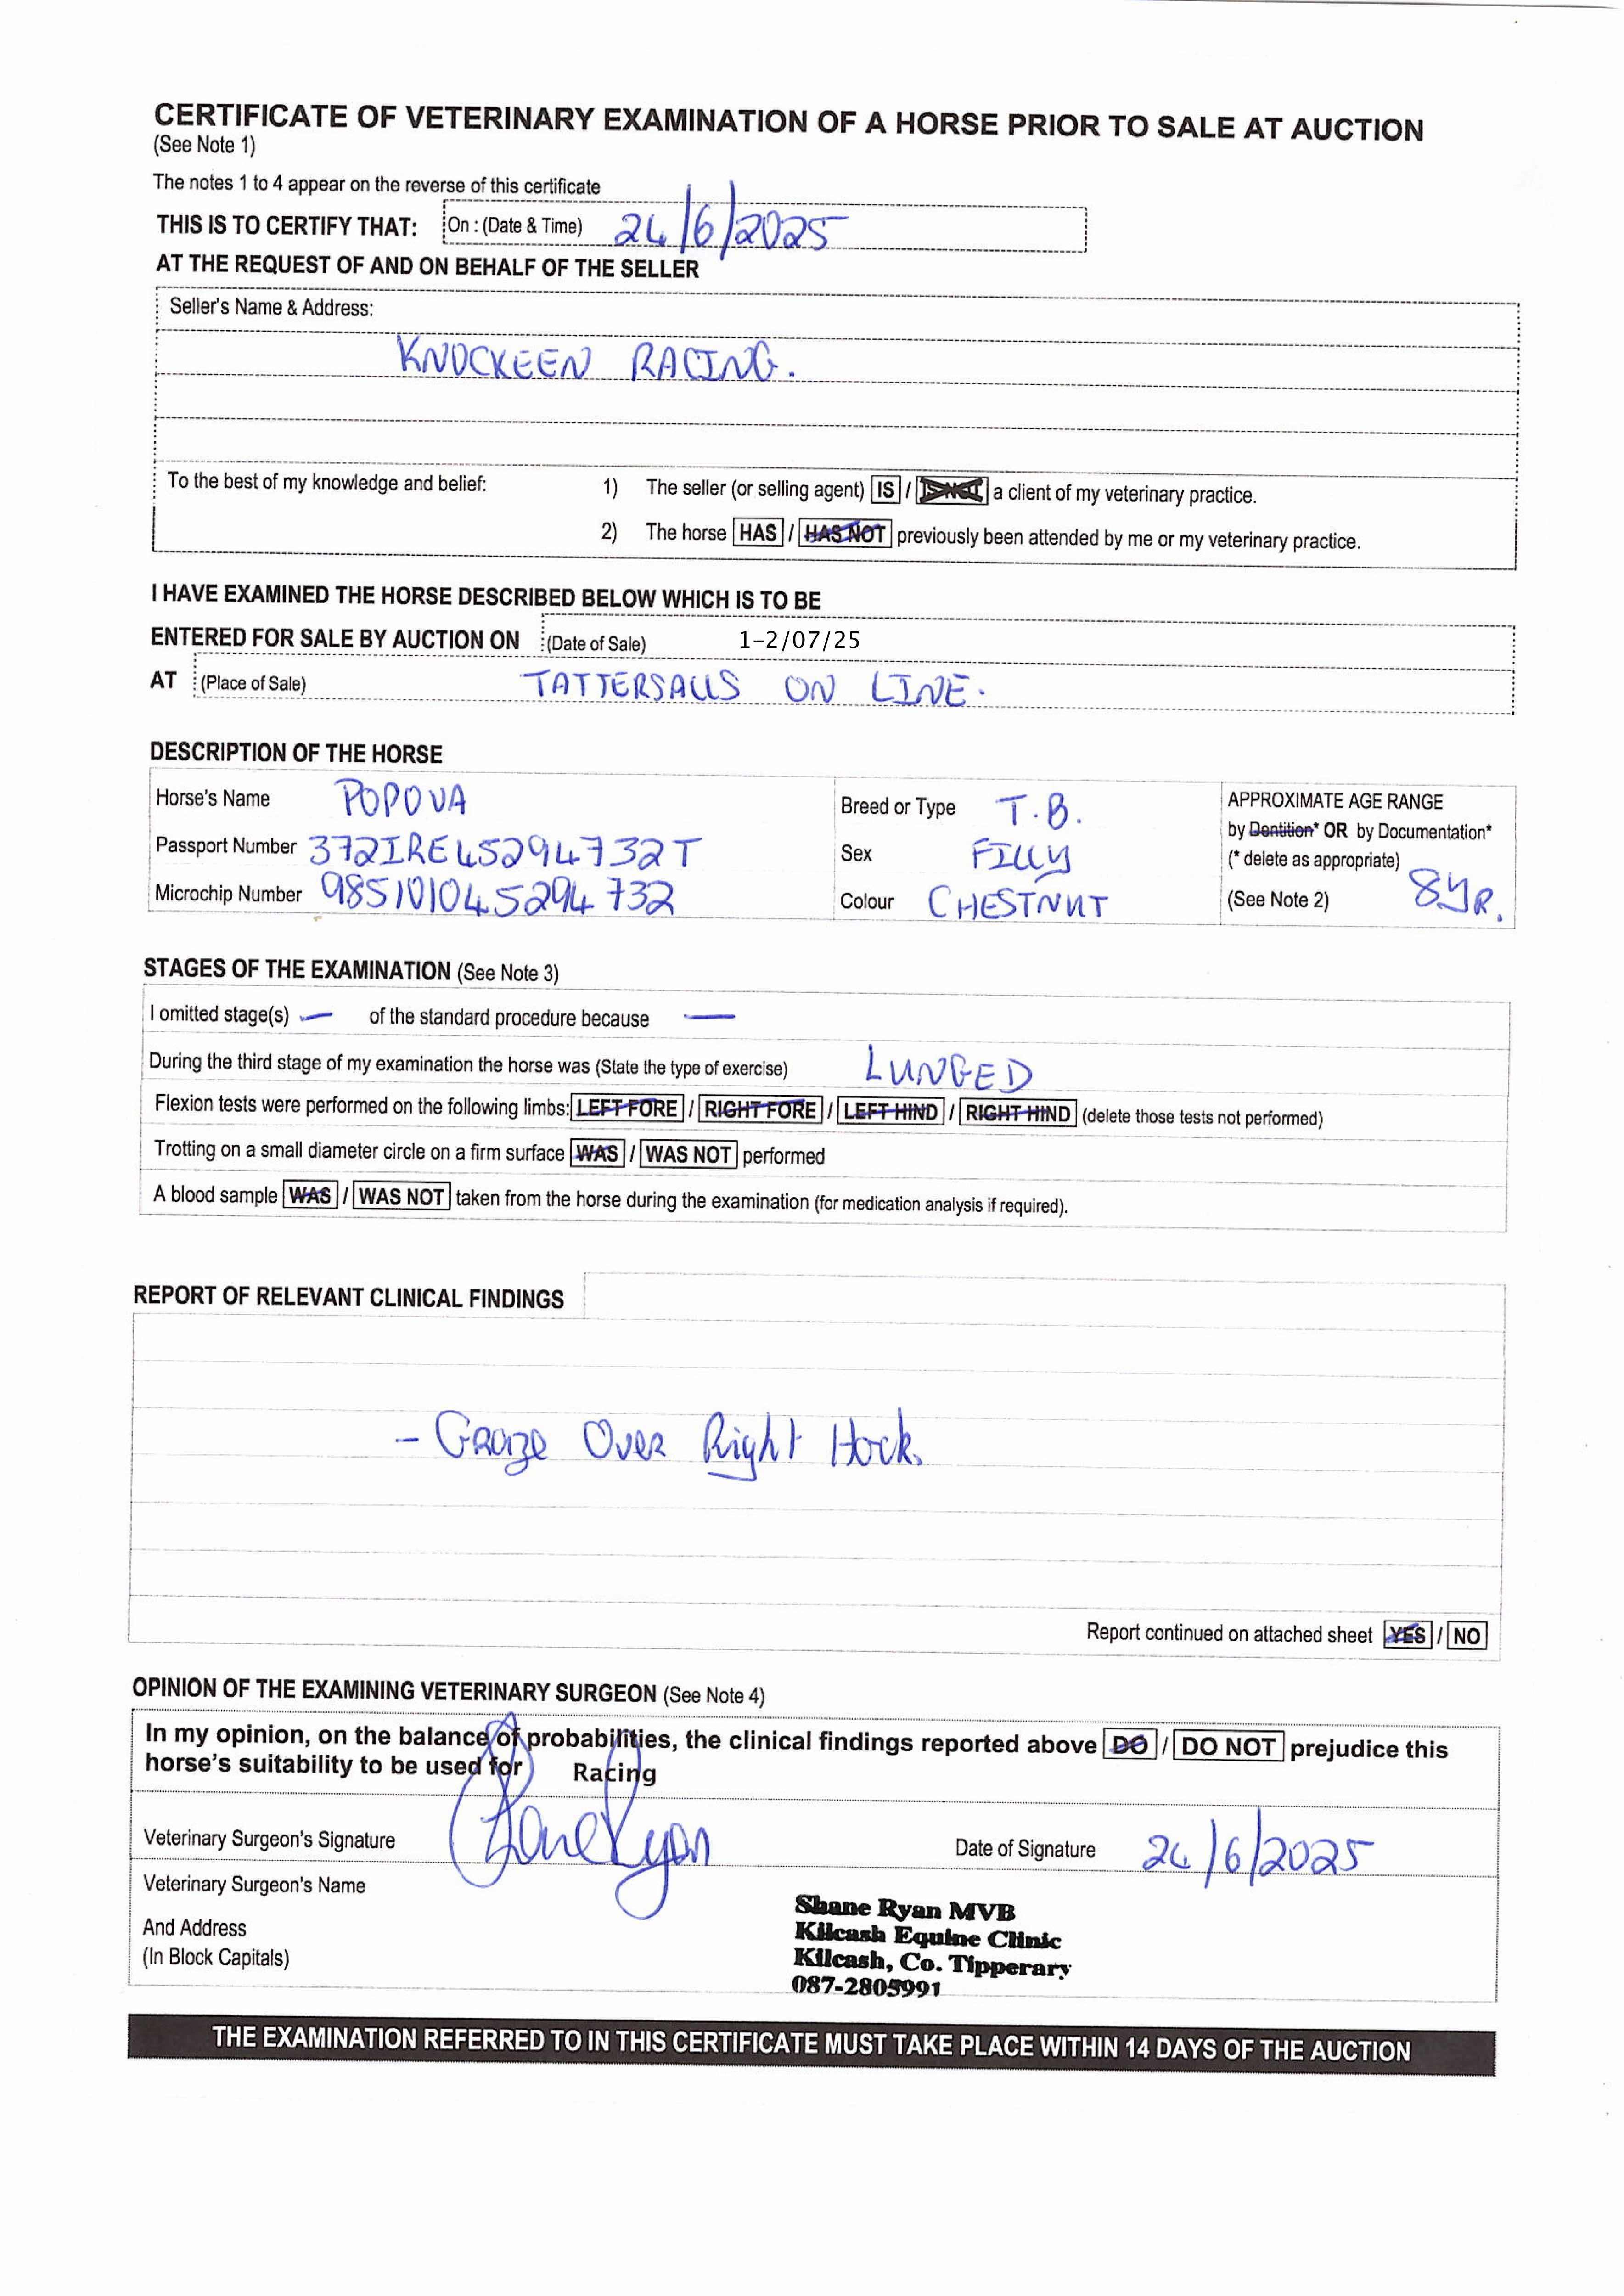 CERTIFICATE OF VETERINARY EXAMINATION OF A HORSE PRIOR TO SALE AT AUCTION
(See Note 1)
The notes 1 to 4 appear on the reverse of this certificate
THIS IS TO CERTIFY THAT: On : (Date & Time) 24/6/2025
AT THE REQUEST OF AND ON BEHALF OF THE SELLER
Seller's Name & Address:
KNOCKEEN RACING.
To the best of my knowledge and belief: 1) The seller (or selling agent) IS / IS NOT a client of my veterinary practice.
2) The horse HAS / HAS NOT previously been attended by me or my veterinary practice.
I HAVE EXAMINED THE HORSE DESCRIBED BELOW WHICH IS TO BE
ENTERED FOR SALE BY AUCTION ON (Date of Sale) 1-2/07/25
AT (Place of Sale) TATTERSALLS ON LINE.
DESCRIPTION OF THE HORSE
Horse's Name POPOVA
Passport Number 372IRE45294732T
Microchip Number 985101045294732
Breed or Type T.B.
Sex FILLY
Colour CHESTNUT
APPROXIMATE AGE RANGE
by Dentition* OR by Documentation*
(* delete as appropriate)
(See Note 2) 8YR.
STAGES OF THE EXAMINATION (See Note 3)
I omitted stage(s) — of the standard procedure because —
During the third stage of my examination the horse was (State the type of exercise) LUNGED
Flexion tests were performed on the following limbs: LEFT FORE / RIGHT FORE / LEFT HIND / RIGHT HIND (delete those tests not performed)
Trotting on a small diameter circle on a firm surface WAS / WAS NOT performed
A blood sample WAS / WAS NOT taken from the horse during the examination (for medication analysis if required).
REPORT OF RELEVANT CLINICAL FINDINGS
- Graze Over Right Hock.
Report continued on attached sheet YES / NO
OPINION OF THE EXAMINING VETERINARY SURGEON (See Note 4)
In my opinion, on the balance of probabilities, the clinical findings reported above DO / DO NOT prejudice this
horse's suitability to be used for Racing
Veterinary Surgeon's Signature Shane Ryan Date of Signature 24/6/2025
Veterinary Surgeon's Name
And Address
(In Block Capitals)
Shane Ryan MVB
Kilcash Equine Clinic
Kilcash, Co. Tipperary
087-2805991
THE EXAMINATION REFERRED TO IN THIS CERTIFICATE MUST TAKE PLACE WITHIN 14 DAYS OF THE AUCTION